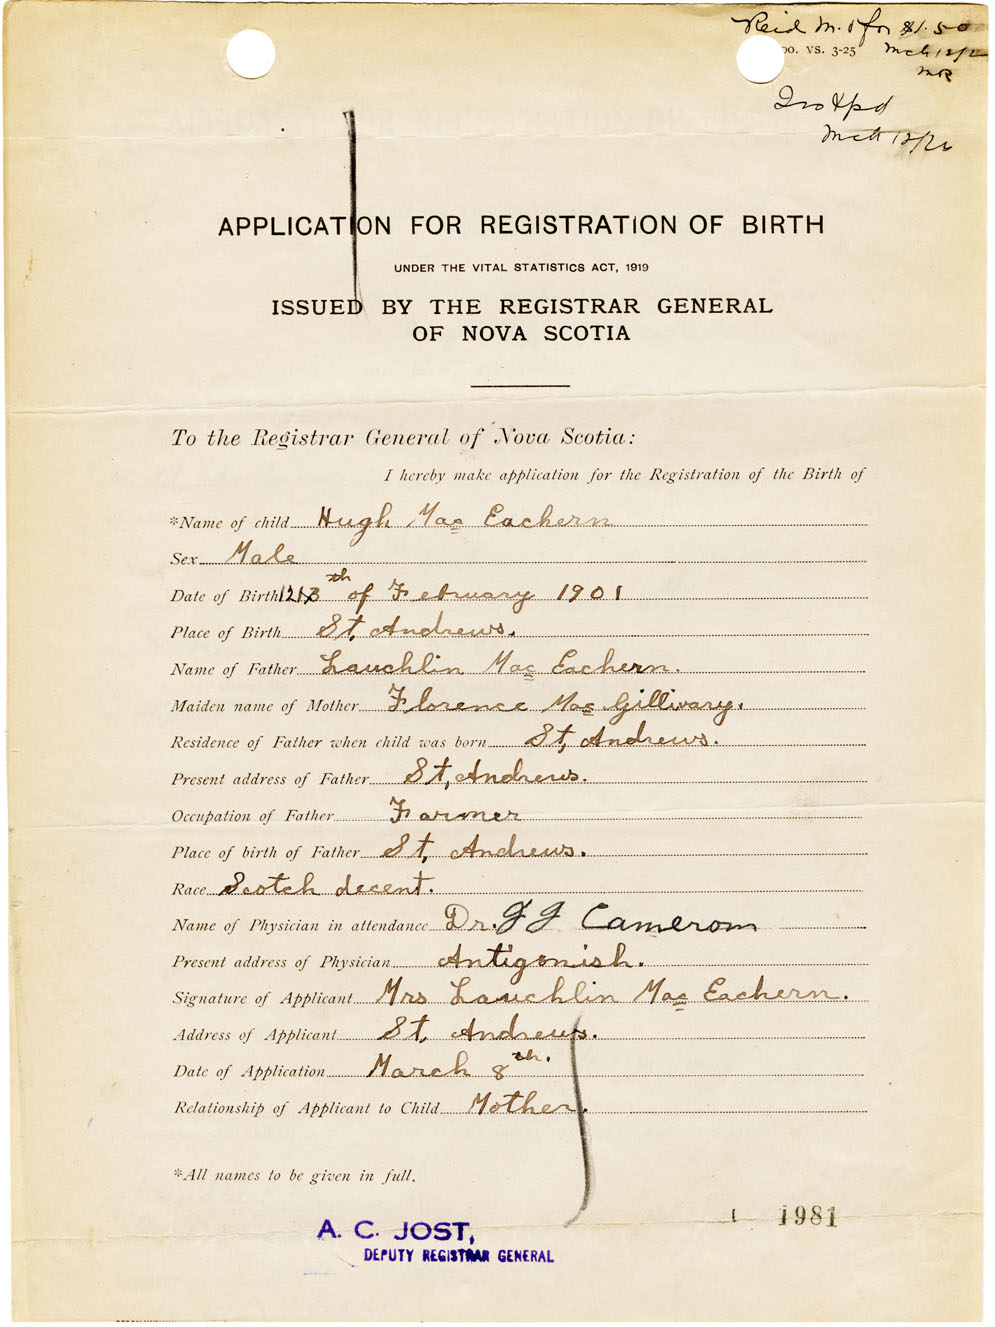 Reid M. O for $1.50
00. VS. 3-25 Mch 12/26
MR
Mch 12/26
APPLICATION FOR REGISTRATION OF BIRTH
UNDER THE VITAL STATISTICS ACT, 1919
ISSUED BY THE REGISTRAR GENERAL
OF NOVA SCOTIA
To the Registrar General of Nova Scotia:
I hereby make application for the Registration of the Birth of
*Name of child Hugh Mac Eachern
Sex Male
Date of Birth 12 13th of February 1901
Place of Birth St, Andrews.
Name of Father Lauchlin Mac Eachern.
Maiden name of Mother Florence Mac Gillivary.
Residence of Father when child was born St, Andrews.
Present address of Father St, Andrews.
Occupation of Father Farmer
Place of birth of Father St, Andrews.
Race Scotch decent.
Name of Physician in attendance Dr. J J Cameron
Present address of Physician Antigonish.
Signature of Applicant Mrs Lauchlin Mac Eachern.
Address of Applicant St, Andrews.
Date of Application March 8th.
Relationship of Applicant to Child Mother.
*All names to be given in full.
1981
A. C. JOST,
DEPUTY REGISTRAR GENERAL